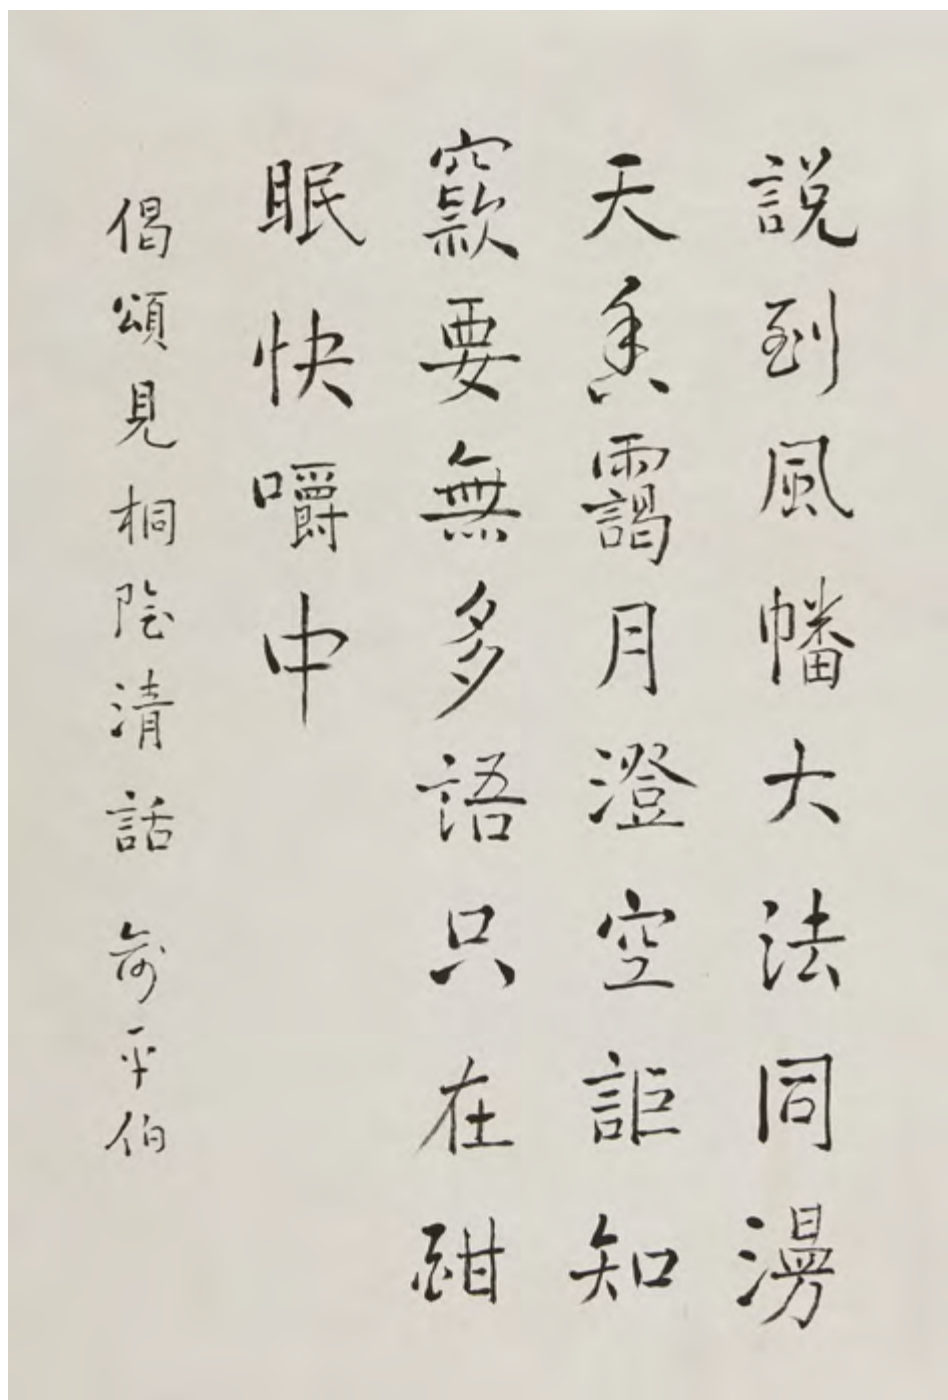 説到風幡大法同漫
天香靄月澄空詎知
窾要無多語只在酣
眠快嚼中
偈頌見桐陰清話 俞平伯